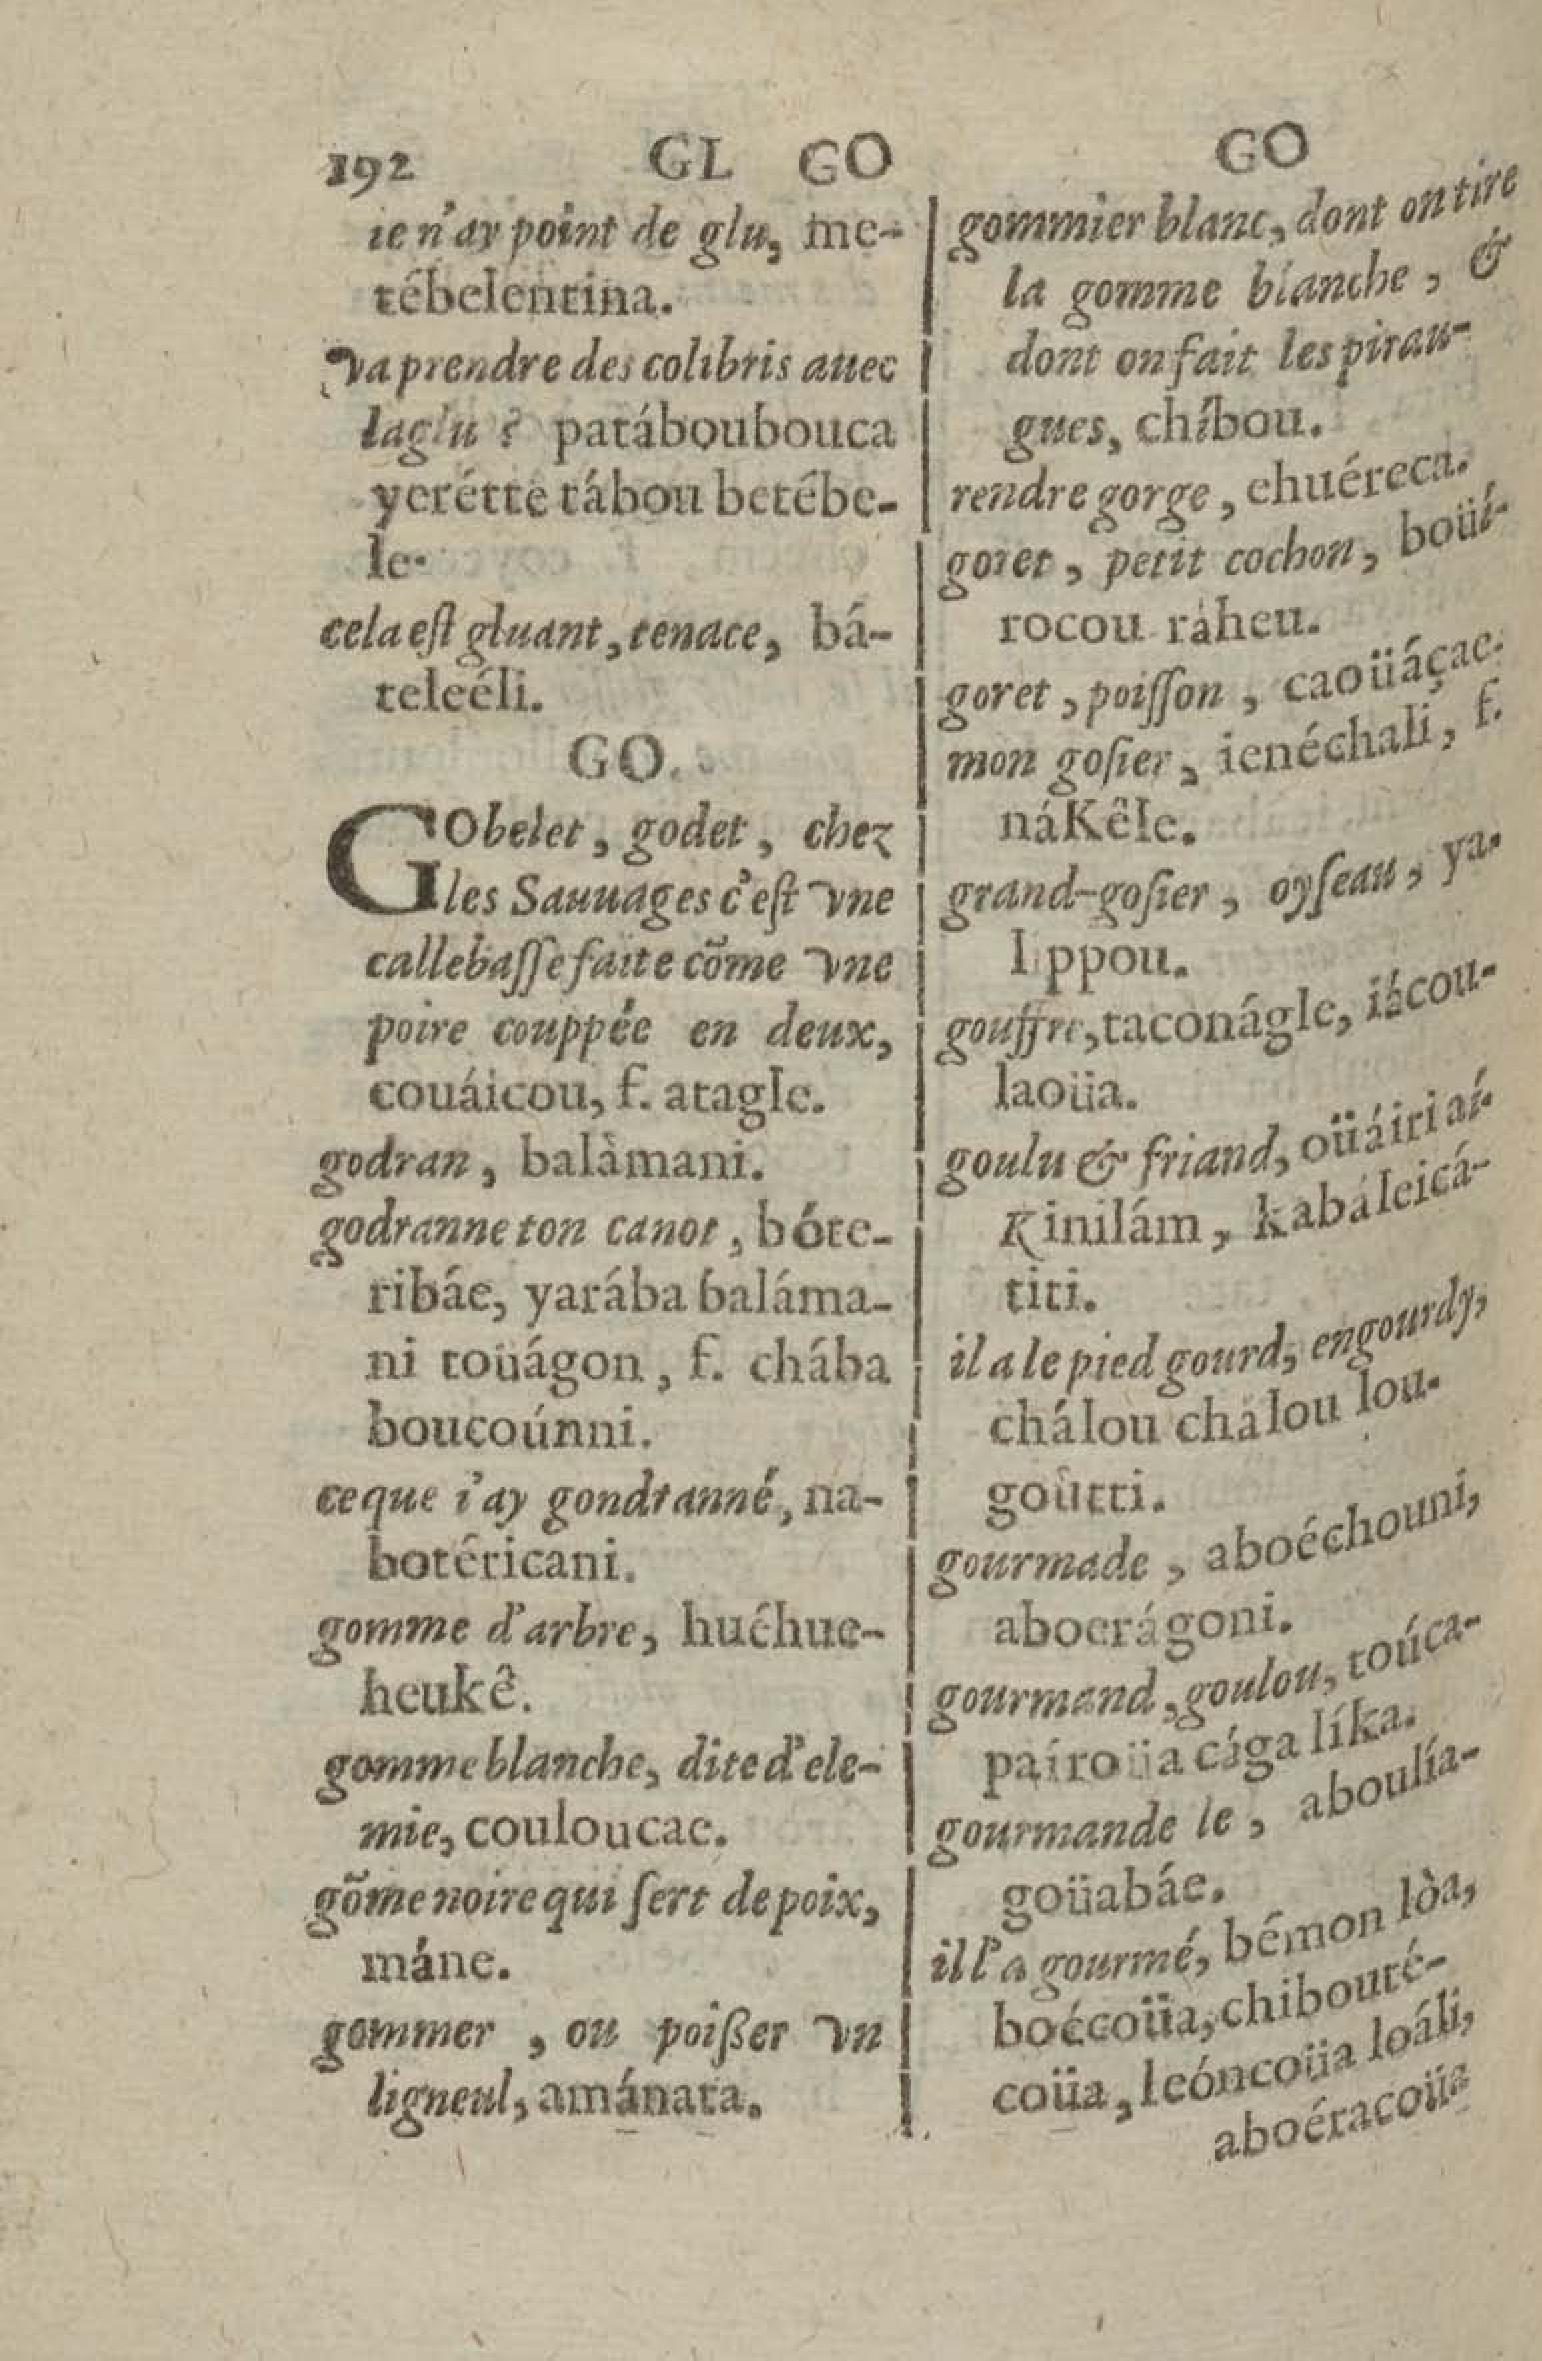 192 GL GO
ie n'ay point de glu, me-
tébelentina.
va prendre des colibris auec
la glu ? patáboubouca
yerétte tábou betébe-
le.
cela est gluant, tenace, bá-
teleéli.
GO.
GObelet, godet, chez
les Sauuages c'est vne
callebasse faite cõme vne
poire couppée en deux,
couáicou, f. atagle.
godran, balàmani.
godranne ton canot, bóte-
ribáe, yarába baláma-
ni toüágon, f. chába
boucoúnni.
ce que i'ay gondranné, na-
botéricani.
gomme d'arbre, huéhue-
heukê.
gomme blanche, dite d'ele-
mie, couloucae.
gõme noire qui sert de poix,
máne.
gommer , ou poisser vn
ligneul, amánata.
GO
gommier blanc, dont on tire
la gomme blanche, &
dont on fait les pirau-
gues, chíbou.
rendre gorge, ehuéreca.
goret, petit cochon, boüí-
rocou ráheu.
goret, poisson, caoüáçae.
mon gosier, ienéchali, f.
náKêle.
grand-gosier, oyseau, ya-
lippou.
gouffre, taconágle, iácou-
laoüa.
goulu & friand, oüáiri aí-
Kinilám, kabáleicá-
titi.
il a le pied gourd, engourdy,
chálou chálou lou-
goútti.
gourmade, aboéchouni,
aboerágoni.
gourmand, goulou, toúca-
paíroüa cága líka.
gourmande le, aboulía-
goüabáe.
il l'a gourmé, bémon lòa,
boéccoüa, chibouté-
coüa, leóncoüa loáli,
aboéracoüa